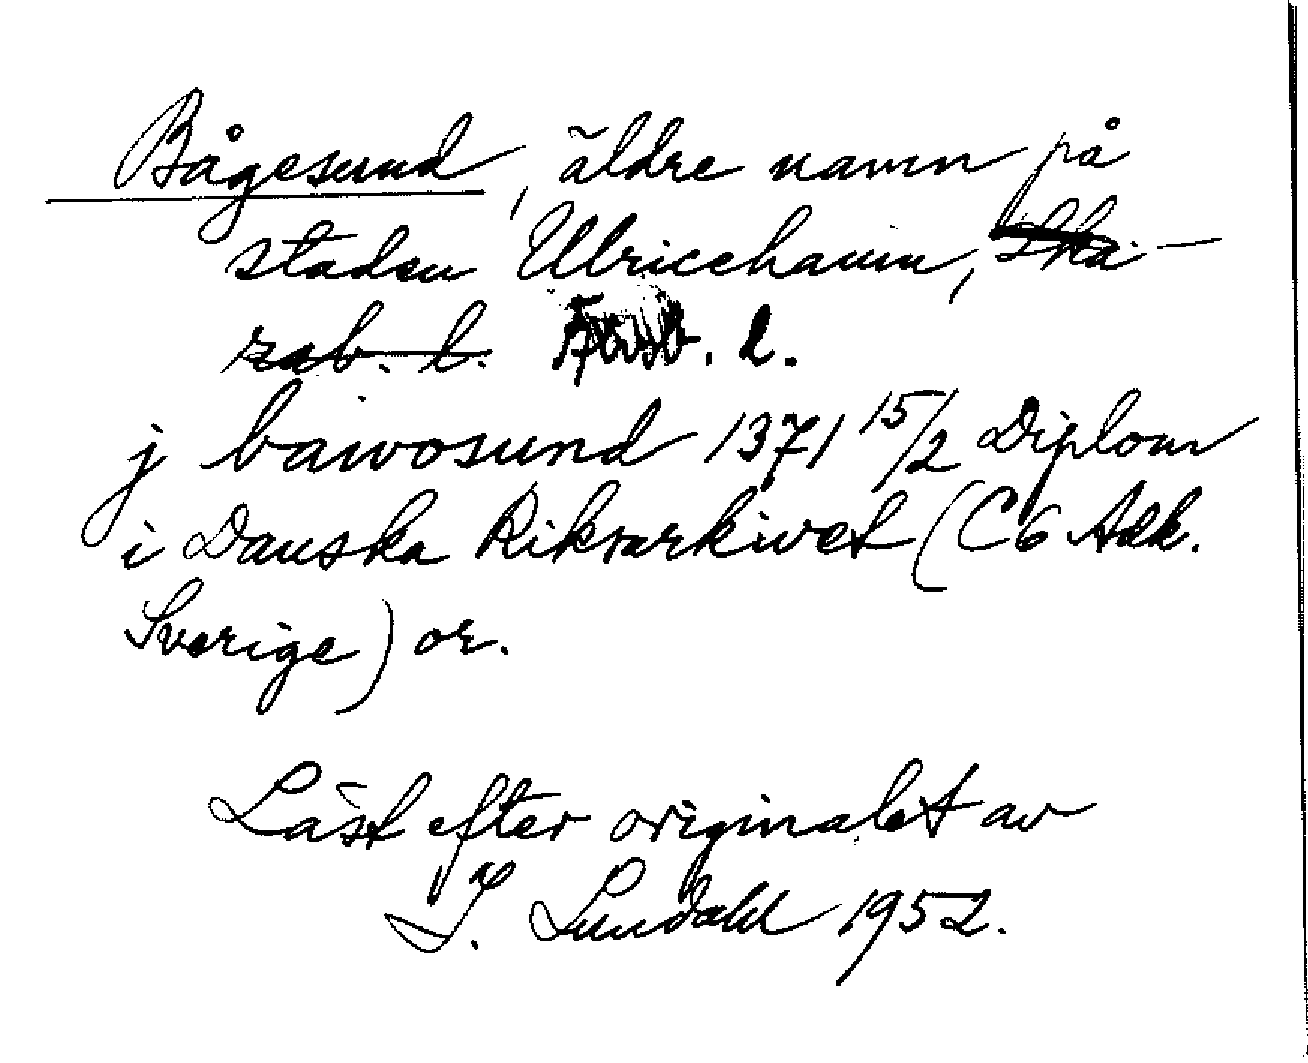 Bågesund, äldre namn på
staden Ulricehamn, Ska-
rab. l. Älvsb. l.
j bawosund 1371 15/2 Diplom
i Danska Riksarkivet (C6 Adk.
Sverige) or.
Läst efter originalet av
I. Lundahl 1952.